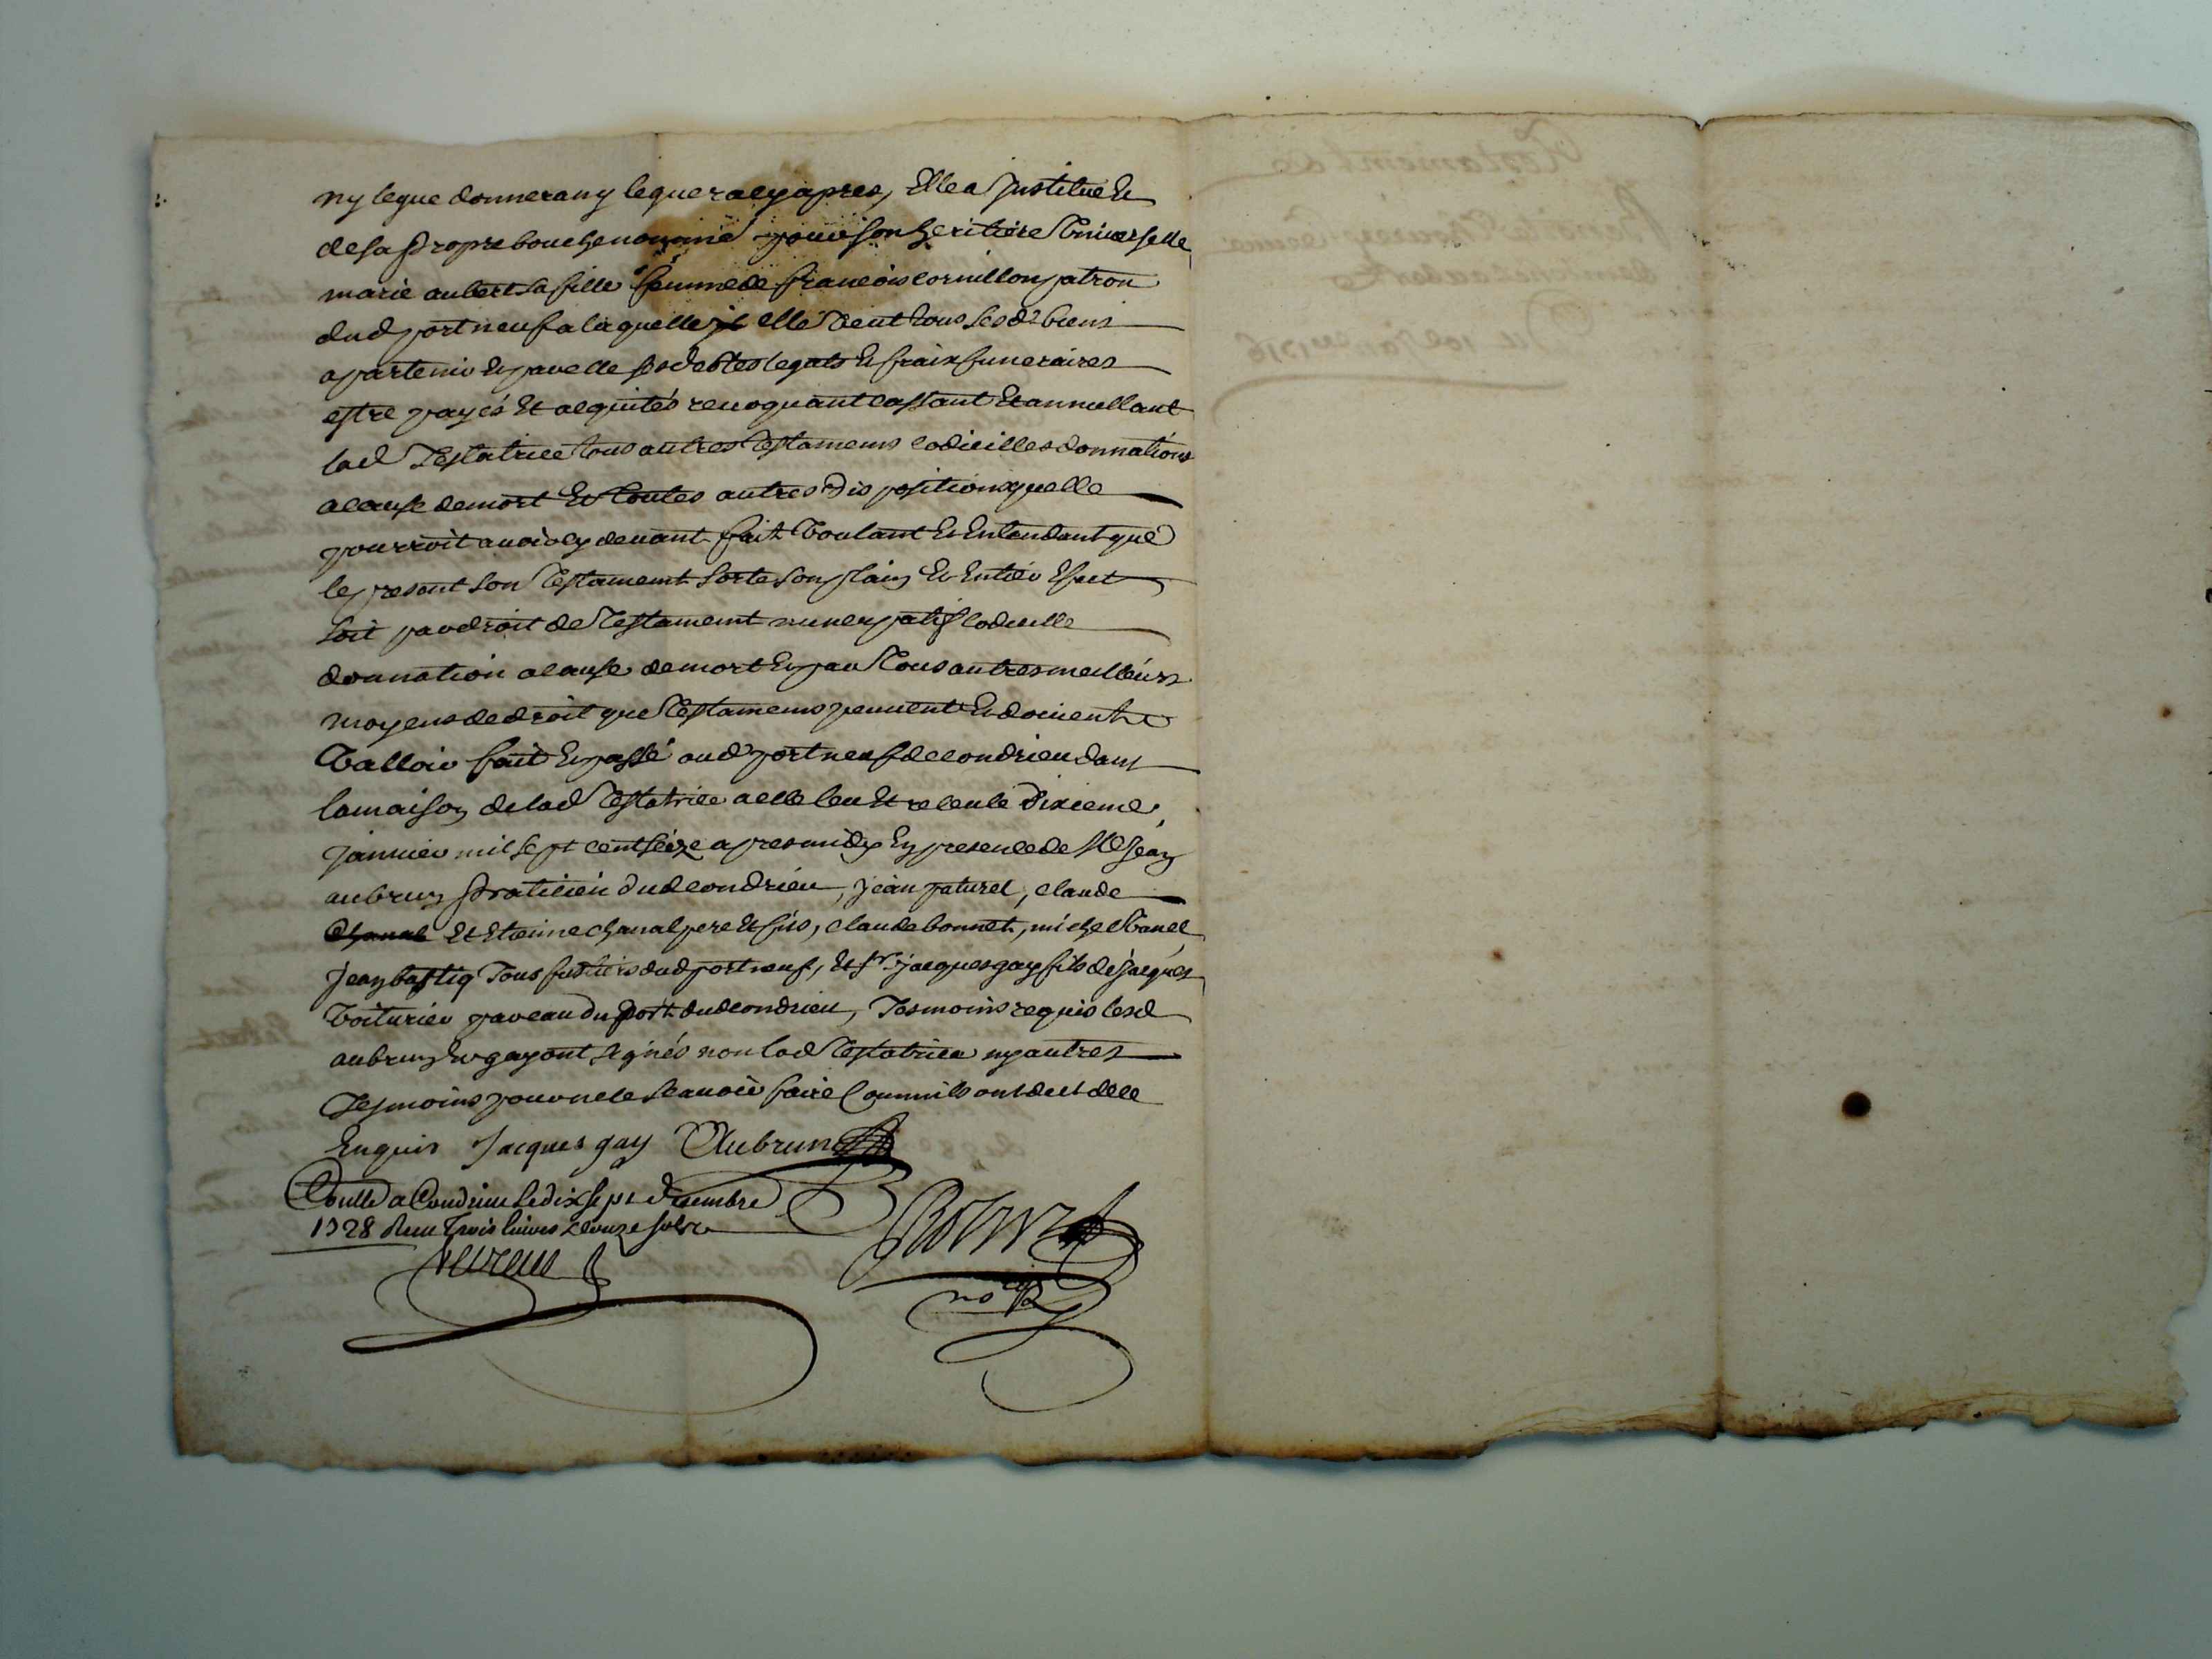 ny legue donnera ny leguera cy apres, Elle a Justitué Et
de sa propre bouche nommé pour son heritiere Universelle
marie aubert sa fille femme de francois cornillon patron
dud port neuf a laquelle elle veut tous ses ds biens
apartenir Et par elle ses debtes legats Et fraix funeraires
estre payés Et acquités revoquant cassant Et annullant
lad Testatrice tous autres Testamens codicilles donnations
a cause de mort Et toutes autres dispositions quelle
pourroit avoir cy devant fait Voulant Et Entendant que
le presant son Testament sorte son plain Et Entier Efect
soit par droit de Testament nuncupatif codicille
donnation a cause de mort Et par tous autres meilleurs
moyens de droit que Testamens peuvent Et doivent
Valloir fait Et passé aud port neuf de condrieu dans
la maison de lad Testatrice a elle leu Et releu le dixieme
janvier mil sept cent seize apres midy En presence de Me Jean
aubrun praticien dud condrieu, jean paturel, claude
chanal Et Etienne chanal pere Et fils, claude bonnet, michel
jean bastiq Tous fustiers dud port neuf, Et sr jacques gay fils de jacques
Voiturier par eau du port dud condrieu, Tesmoins requis lesd
aubrun Et gay ont signés non lad Testatrice ny autres
Tesmoins pour ne le scavoir faire comm ils ont dit de ce
Enquis Jacques gay Aubrun
Conllé a Condrieu le dix sept decembre
1728 Receu Trois livres
nore
Testament de